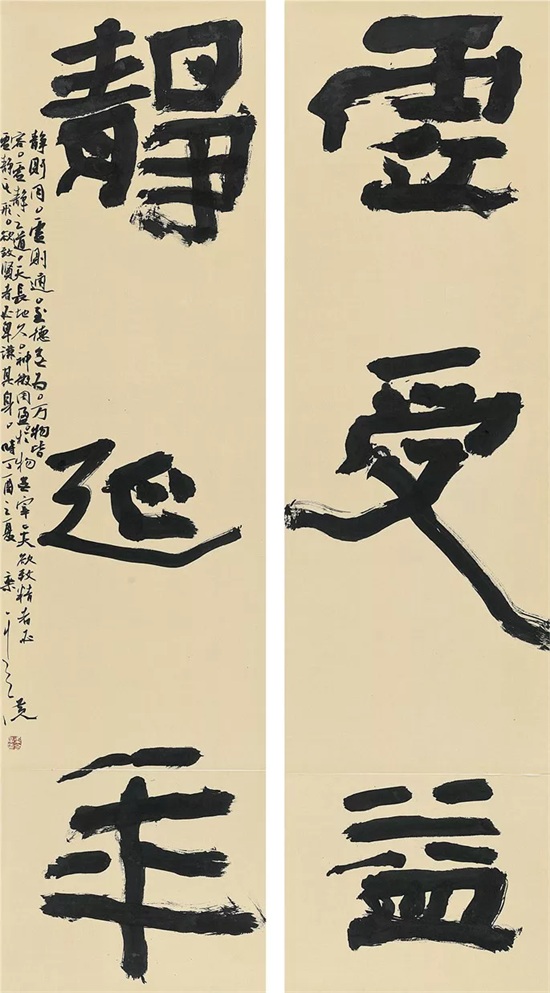 虛受益
靜延年
靜則同。虛則通。至德無為。万物皆
容。虛靜之道。天長地久。神微周盈於物無宰。夫欲致精者必
虛靜其形。欲致賢者必卑謙其身。時丁酉之夏